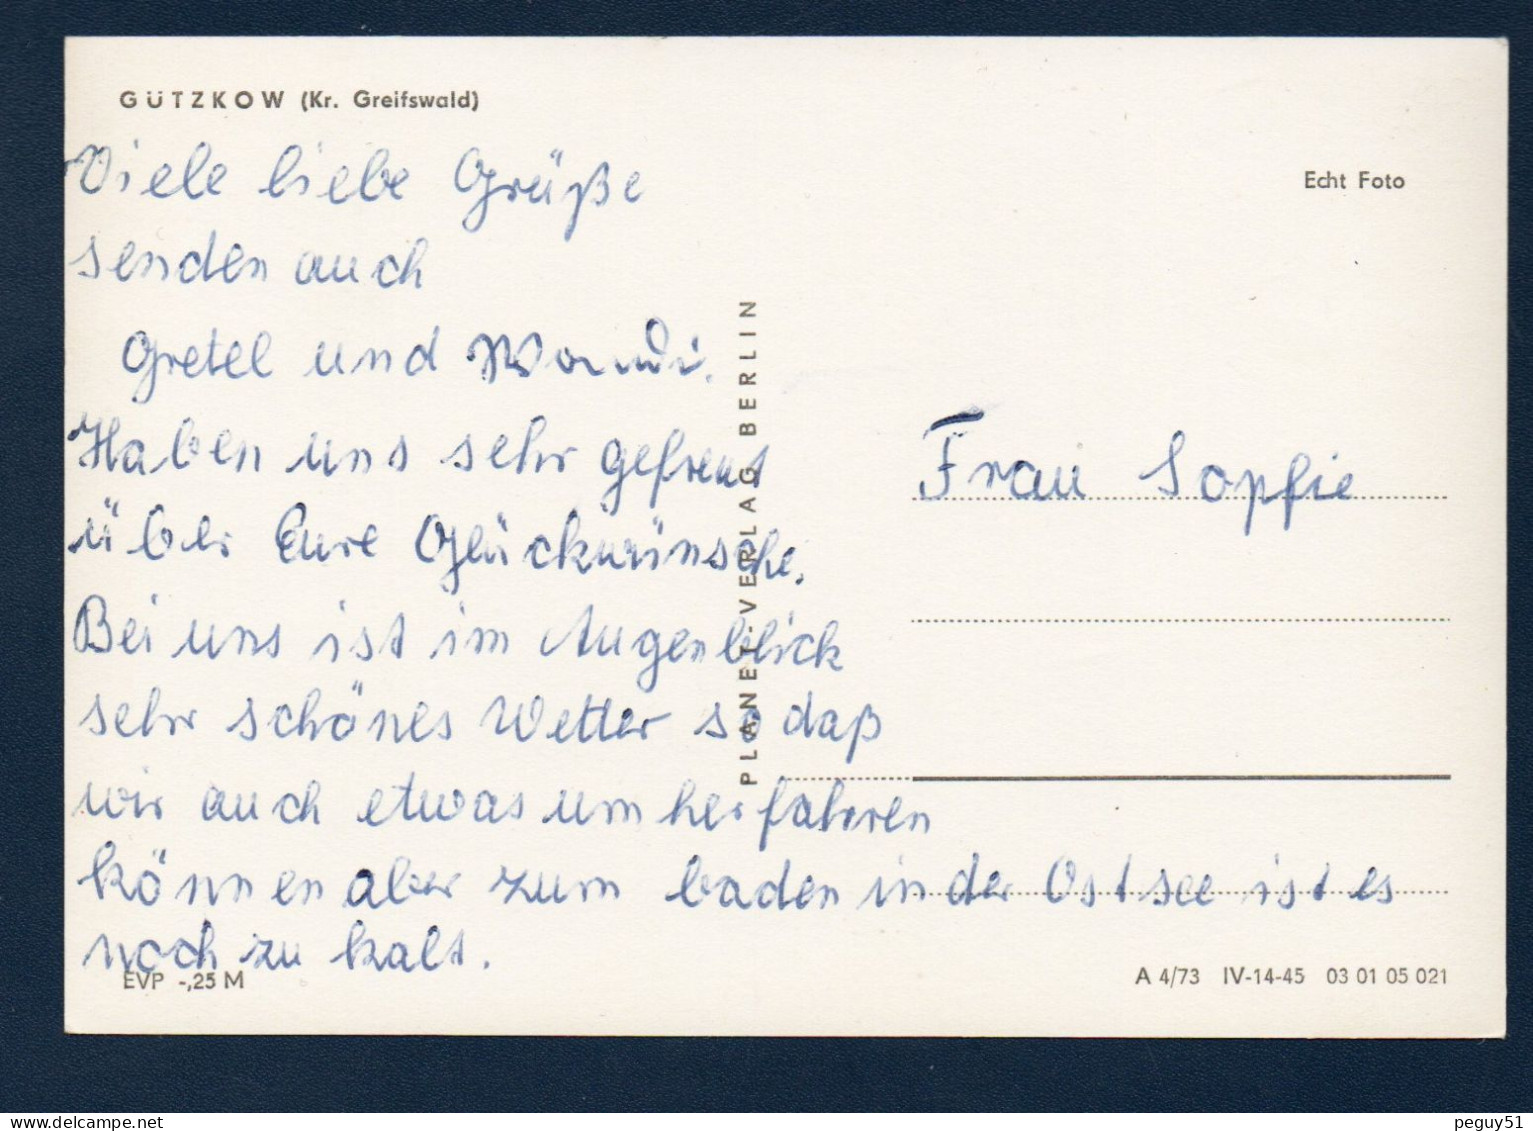 GÜTZKOW (Kr. Greifswald)
Viele liebe Grüße
senden auch
Gretel und
Haben uns sehr gefreut
über Eure Glückwünsche.
Bei uns ist im Augenblick
sehr schönes Wetter so daß
wir auch etwas umherfahren
können aber zum baden in der Ostsee ist es
noch zu kalt.
EVP -,25 M
PLANET-VERLAG BERLIN
Echt Foto
Frau Sopfie
A 4/73 IV-14-45 03 01 05 021
peguy51